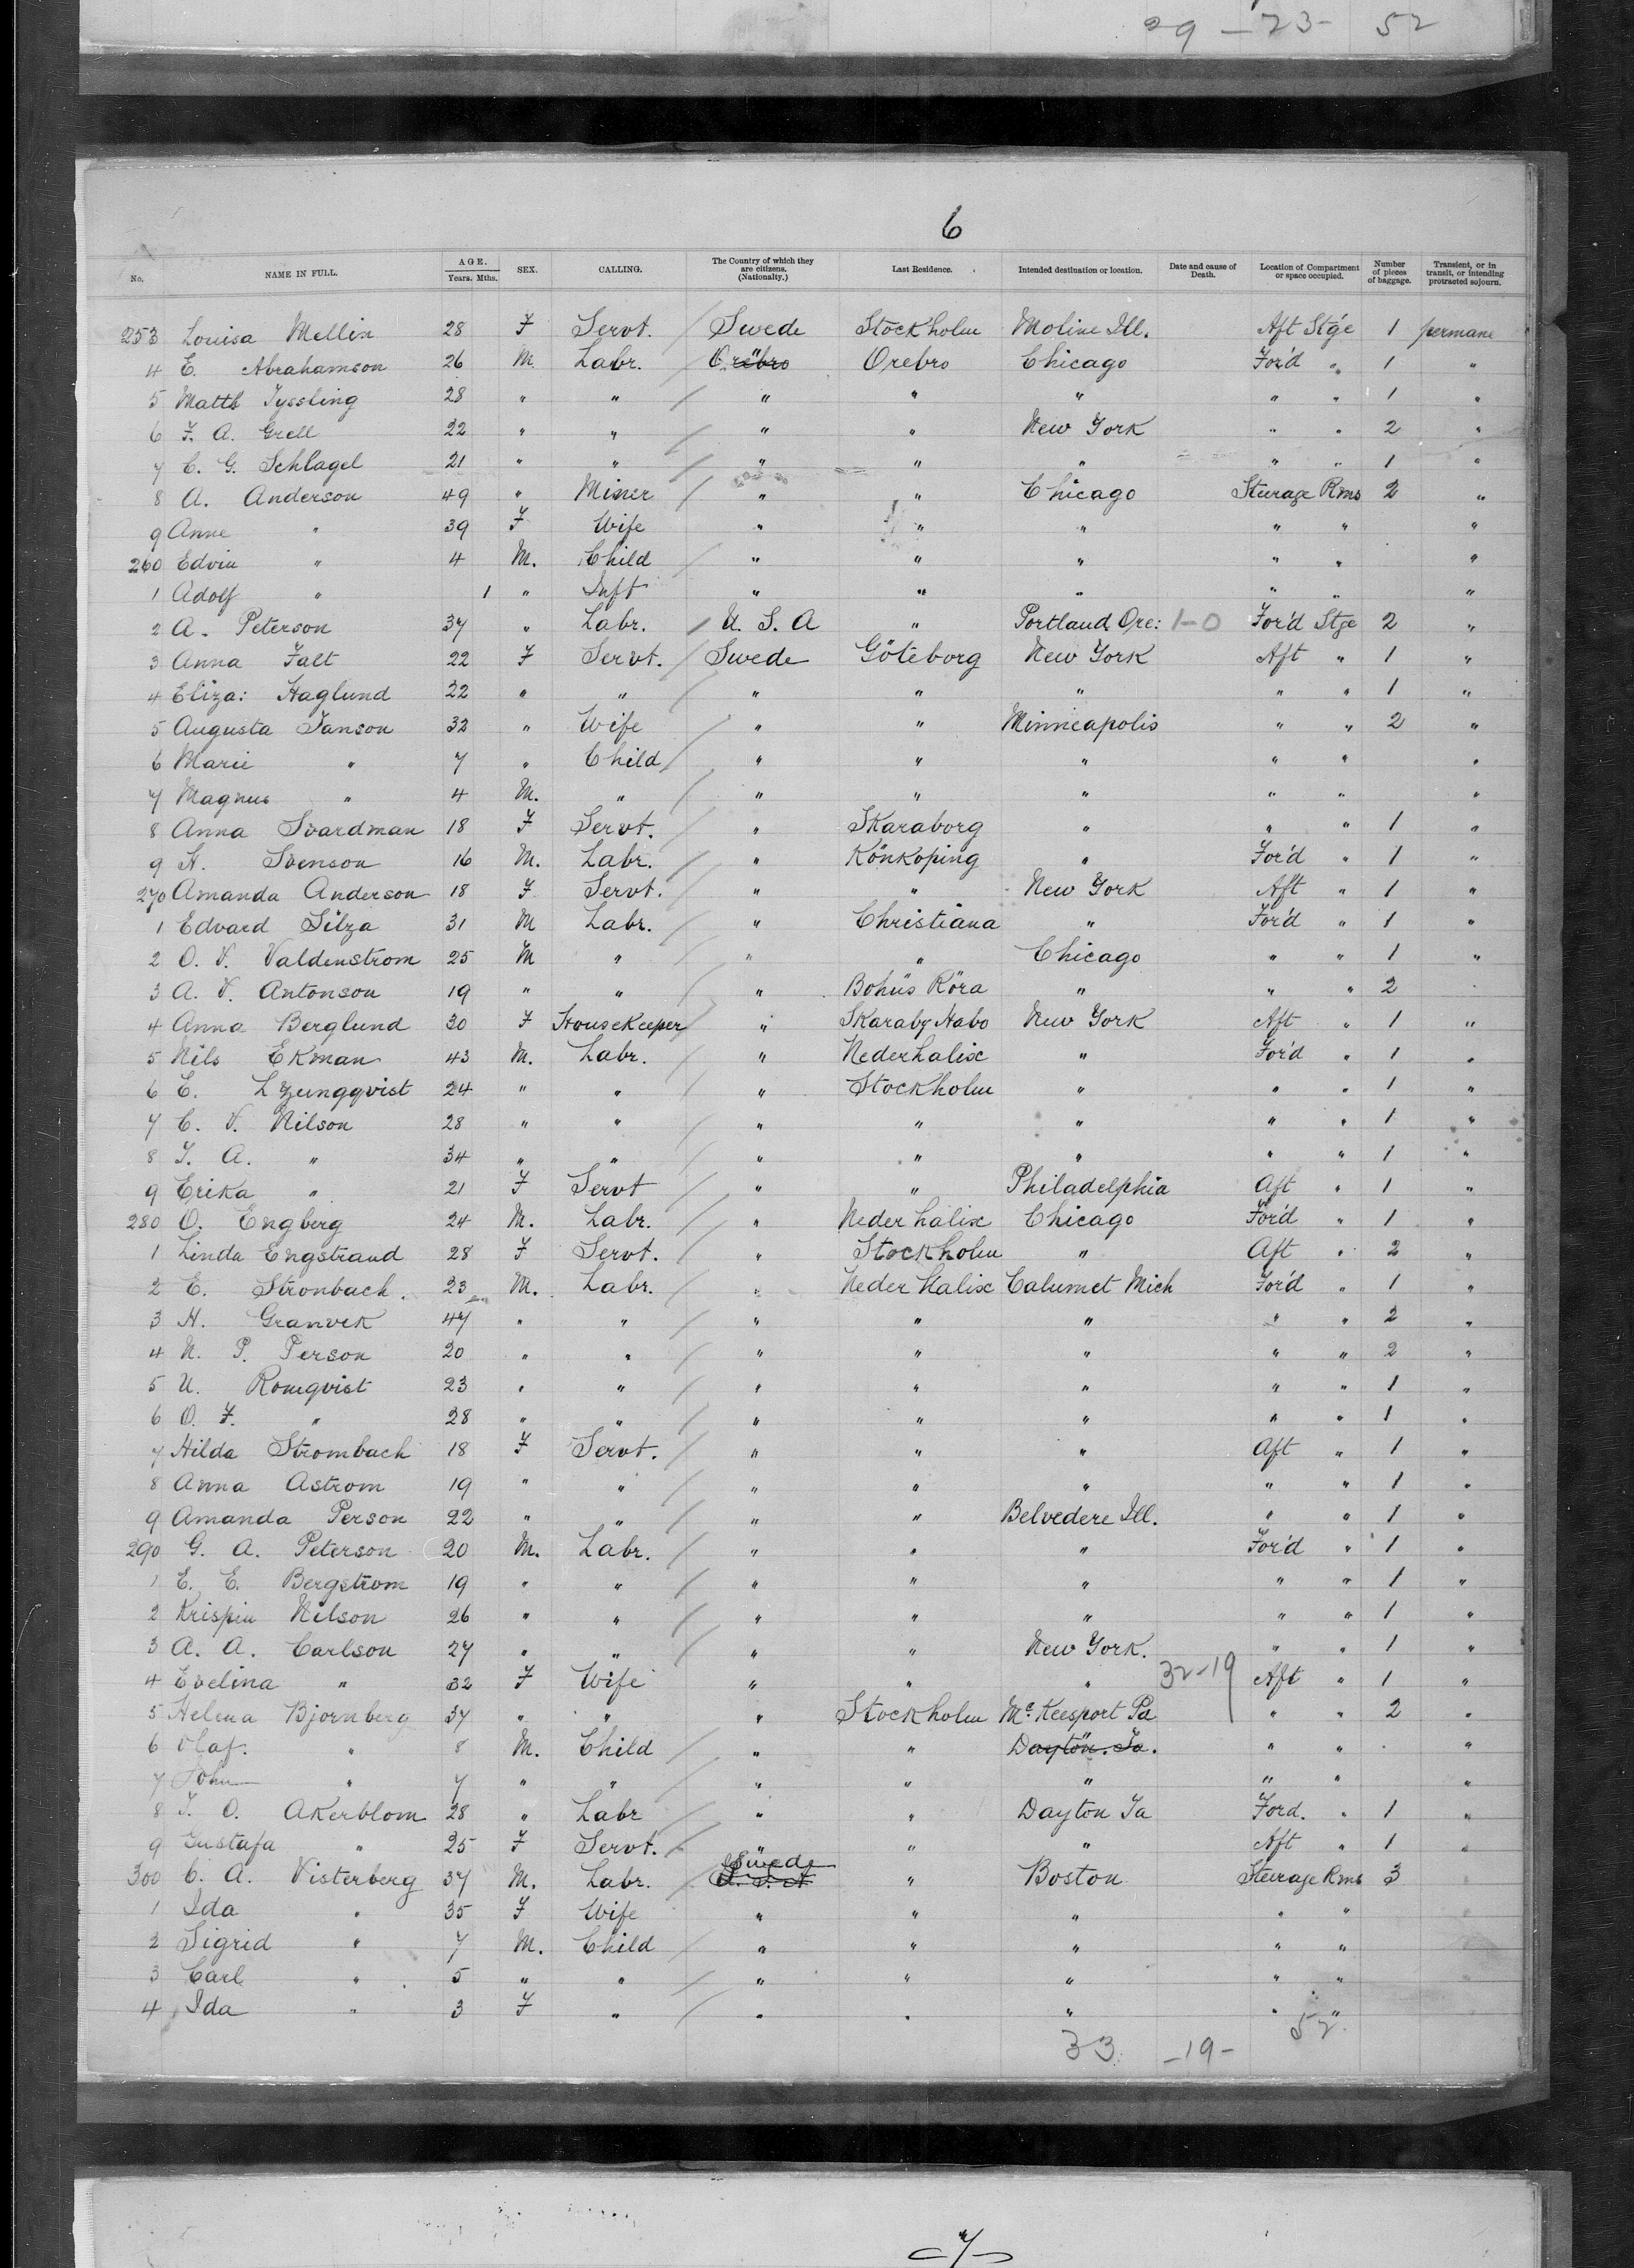 29 - 23 - 52
6
No. NAME IN FULL. AGE. Years. Mths. SEX. CALLING. The Country of which they are citizens. (Nationalty.) Last Residence. Intended destination or location. Date and cause of Death. Location of Compartment or space occupied. Number of pieces of baggage. Transient, or in transit, or intending protracted sojourn.
253 Louisa Mellin 28 F Servt. / Swede Stockholm Moline Ill. Aft Stge 1 permane
4 E. Abrahamson 26 M. Labr. / Orebro Orebro Chicago For'd " 1 "
5 Matth Tyssling 28 " " / " " " " " 1 "
6 F. A. Grell 22 " " / " " New York " " 2 "
7 C. G. Schlagel 21 " " / " " " " " 1 "
8 A. Anderson 49 " Miner / " " Chicago Sterage Rms 2 "
9 Anne " 39 F Wife " " " " " "
260 Edvin " 4 M. Child / " " " " " "
1 Adolf " 1 " Inft " " " " " "
2 A. Peterson 37 " Labr. / U. S. A " Portland Ore: 1-0 For'd Stge 2 "
3 Anna Falt 22 F Servt. / Swede Göteborg New York Aft " 1 "
4 Eliza: Haglund 22 " " / " " " " " 1 "
5 Augusta Janson 32 " Wife / " " Minneapolis " " 2 "
6 Marie " 7 " Child / " " " " " "
7 Magnus " 4 M. " / " " " " " "
8 Anna Svardman 18 F Servt. / " Skaraborg " " " 1 "
9 H. Svenson 16 M. Labr. / " Könkoping " For'd " 1 "
270 Amanda Anderson 18 F Servt. / " " New York Aft " 1 "
1 Edvard Silza 31 M Labr. / " Christiana " For'd " 1 "
2 O. V. Valdenstrom 25 M " / " " Chicago " " 1 "
3 A. V. Antonson 19 " " / " Bohüs Röra " " " 2 "
4 Anna Berglund 30 F HouseKeeper / " Skaraby Habo New York Aft " 1 "
5 Nils Ekman 43 M. Labr. / " Nederhalix " For'd " 1 "
6 E. Lyungqvist 24 " " / " Stockholm " " " 1 "
7 C. V. Nilson 28 " " / " " " " " 1 "
8 J. A. " 34 " " / " " " " " 1 "
9 Erika " 21 F Servt / " " Philadelphia Aft " 1 "
280 O. Engberg 24 M. Labr. / " Neder halix Chicago For'd " 1 "
1 Linda Engstrand 28 F Servt. / " Stockholm " Aft " 2 "
2 E. Stronbach. 23 M. Labr. / " Neder Halix Calumet Mich For'd " 1 "
3 H. Granvek 47 " " / " " " " " 2 "
4 N. P. Person 20 " " / " " " " " 2 "
5 U. Romqvist 23 " " / " " " " " 1 "
6 O. F. " 28 " " / " " " " " 1 "
7 Hilda Strombach 18 F Servt. / " " " Aft " 1 "
8 Anna Astrom 19 " " / " " " " " 1 "
9 Amanda Person 22 " " / " " Belvedere Ill. " " 1 "
290 G. A. Peterson 20 M. Labr. / " " " For'd " 1 "
1 E. E. Bergstrom 19 " " / " " " " " 1 "
2 Krispin Nilson 26 " " / " " " " " 1 "
3 A. A. Carlson 27 " " / " " New York. " " 1 "
4 Evelina " 32 F Wife " " " 32-19 Aft " 1 "
5 Helena Bjornberg 37 " " / " Stockholm Mc Keesport Pa " " 2 "
6 Olaf. " 8 M. Child / " " Dayton. Ia. " " "
7 John " 7 " " / " " " " " "
8 J. O. Akerblom 28 " Labr / " " Dayton Ia Ford. " 1 "
9 Gustafa " 25 F Servt. / " " " Aft " 1 "
300 C. A. Visterberg 37 M. Labr. / Swede U. S. A " Boston Steerage Rms 3
1 Ida " 35 F Wife " " " " "
2 Sigrid " 7 M. Child / " " " " "
3 Carl " 5 " " / " " " " "
4 Ida " 3 F " / " " " " "
33 -19- 52
7